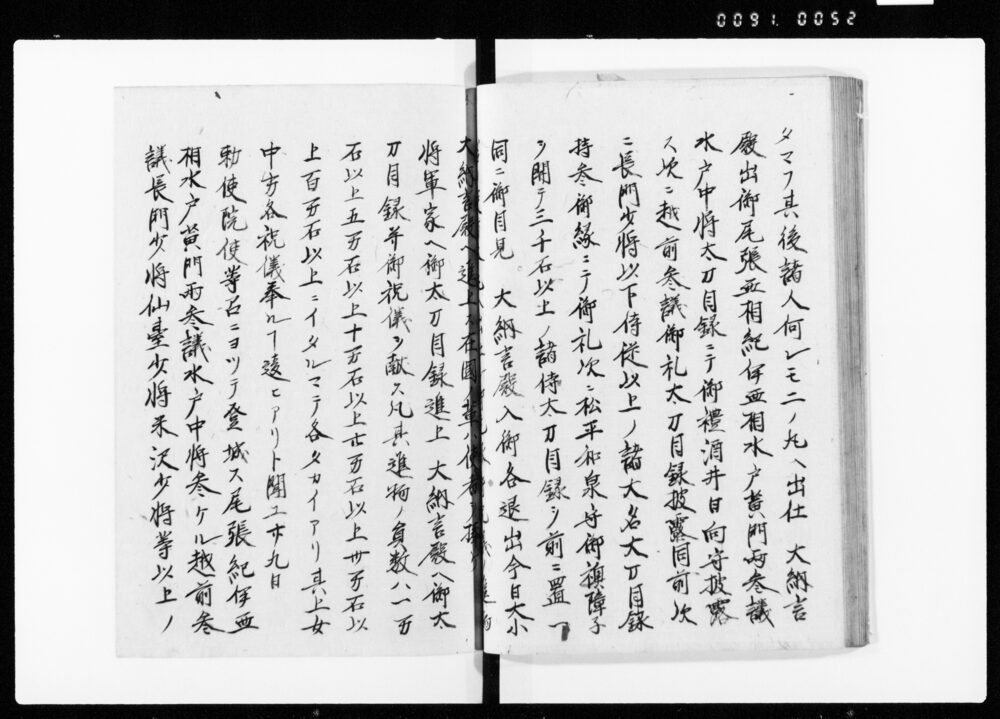 0091. 0052
タマフ其後諸人何レモ二ノ丸ヘ出仕 大納言
殿出御尾張亜相紀伊亜相水戸黄門両参議
水戸中将太刀目録ニテ御禮酒井日向守披露
ス次ニ越前参議御礼太刀目録披露同前次
ニ長門少将以下侍従以上ノ諸大名太刀目録
持参御縁ニテ御礼次ニ松平和泉守御襖障子
ヲ開テ三千石以上ノ諸侍太刀目録ヲ前ニ置一
同ニ御目見 大納言殿入御各退出今日大小
大納言殿ヘ進上ス在國ノ輩ハ使者
将軍家ヘ御太刀目録進上 大納言殿ヘ御太
刀目録并御祝儀ヲ献ス凡其進物ノ員数ハ一万
石以上五万石以上十万石以上廿万石以上卅万石以
上百万石以上ニイタルマテ各タカイアリ其上女
中方各祝儀奉ルヿ遠ヒアリト聞エ廿九日
勅使院使等召ニヨツテ登城ス尾張紀伊亜
相水戸黄門両参議水戸中将参ケル越前参
議長門少将仙臺少将米沢少将等以上ノ